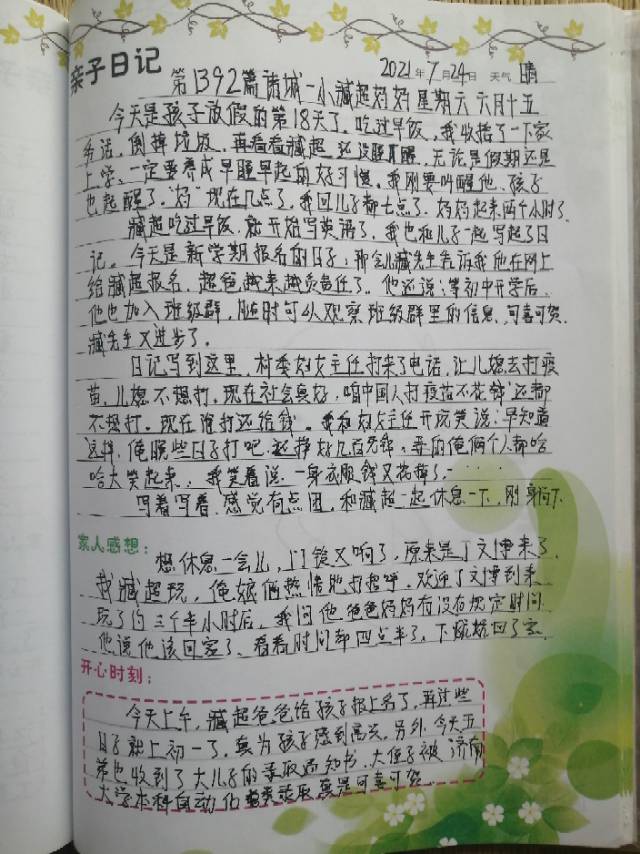 亲子日记
2021年7月24日 天气 晴
第1392篇诸城一小臧超妈妈 星期六 六月十五
今天是孩子放假的第18天了。吃过早饭,我收拾了一下家
务活,倒掉垃圾,再看看臧超还没睡醒,无论是假期还是
上学,一定要养成早睡早起的好习惯。我刚要叫醒他,孩子
也起醒了,"妈"现在几点了,我回儿子都七点了,妈妈起来两个小时了。
臧超吃过早饭,就开始写英语了,我也和儿子一起写起了日
记。今天是新学期报名的日子,那会儿臧先生告诉我他在网上
给臧超报名,超爸越来越负责任了。他还说:等初中开学后,
他也加入班级群,随时可以观察班级群里的信息,可喜可贺,
臧先生又进步了。
日记写到这里,村委妇女主任打来了电话,让儿媳去打疫
苗,儿媳不想打,现在社会真好,咱中国人打疫苗不花钱还都
不想打。现在谁打还给钱。我和妇女主任开玩笑说:早知道
这样,俺晚些日子打吧,还挣好几百元钱,弄的俺俩个人都哈
哈大笑起来,我笑着说,一身衣服钱又花掉了……
写着写着,感觉有点困,和臧超一起休息一下,刚躺下
家人感想:
想休息一会儿,门铃又响了,原来是丁文博来了,
找臧超玩,俺娘俩热情地打招呼,欢迎丁文博到来
玩了约三个半小时后,我问他爸爸妈妈有没有规定时间
他说他该回家了,看看时间都四点半了,下楼回了家
开心时刻:
今天上午,臧超爸爸给孩子报上名了,再过些
日子就上初一了,真为孩子感到高兴,另外今天五
弟也收到了大儿子的录取通知书,大侄子被济南
大学本科自动化录取真是可喜可贺